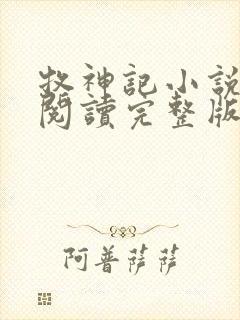 牧神記小說
閱讀完整版
阿普薩薩